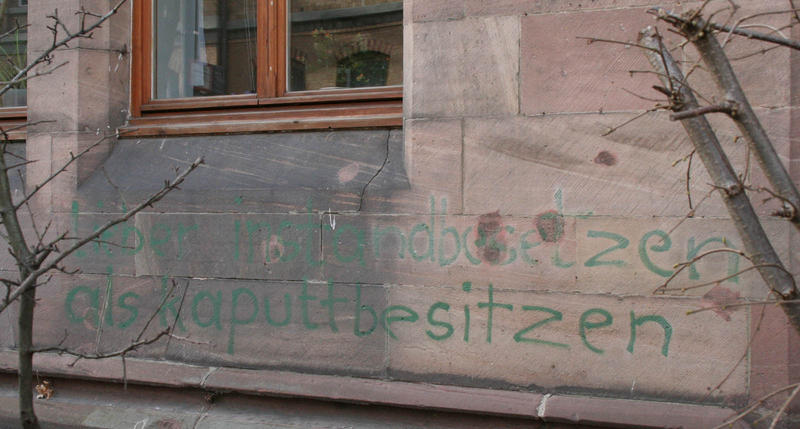 lieber instandbesetzen
als kaputtbesitzen